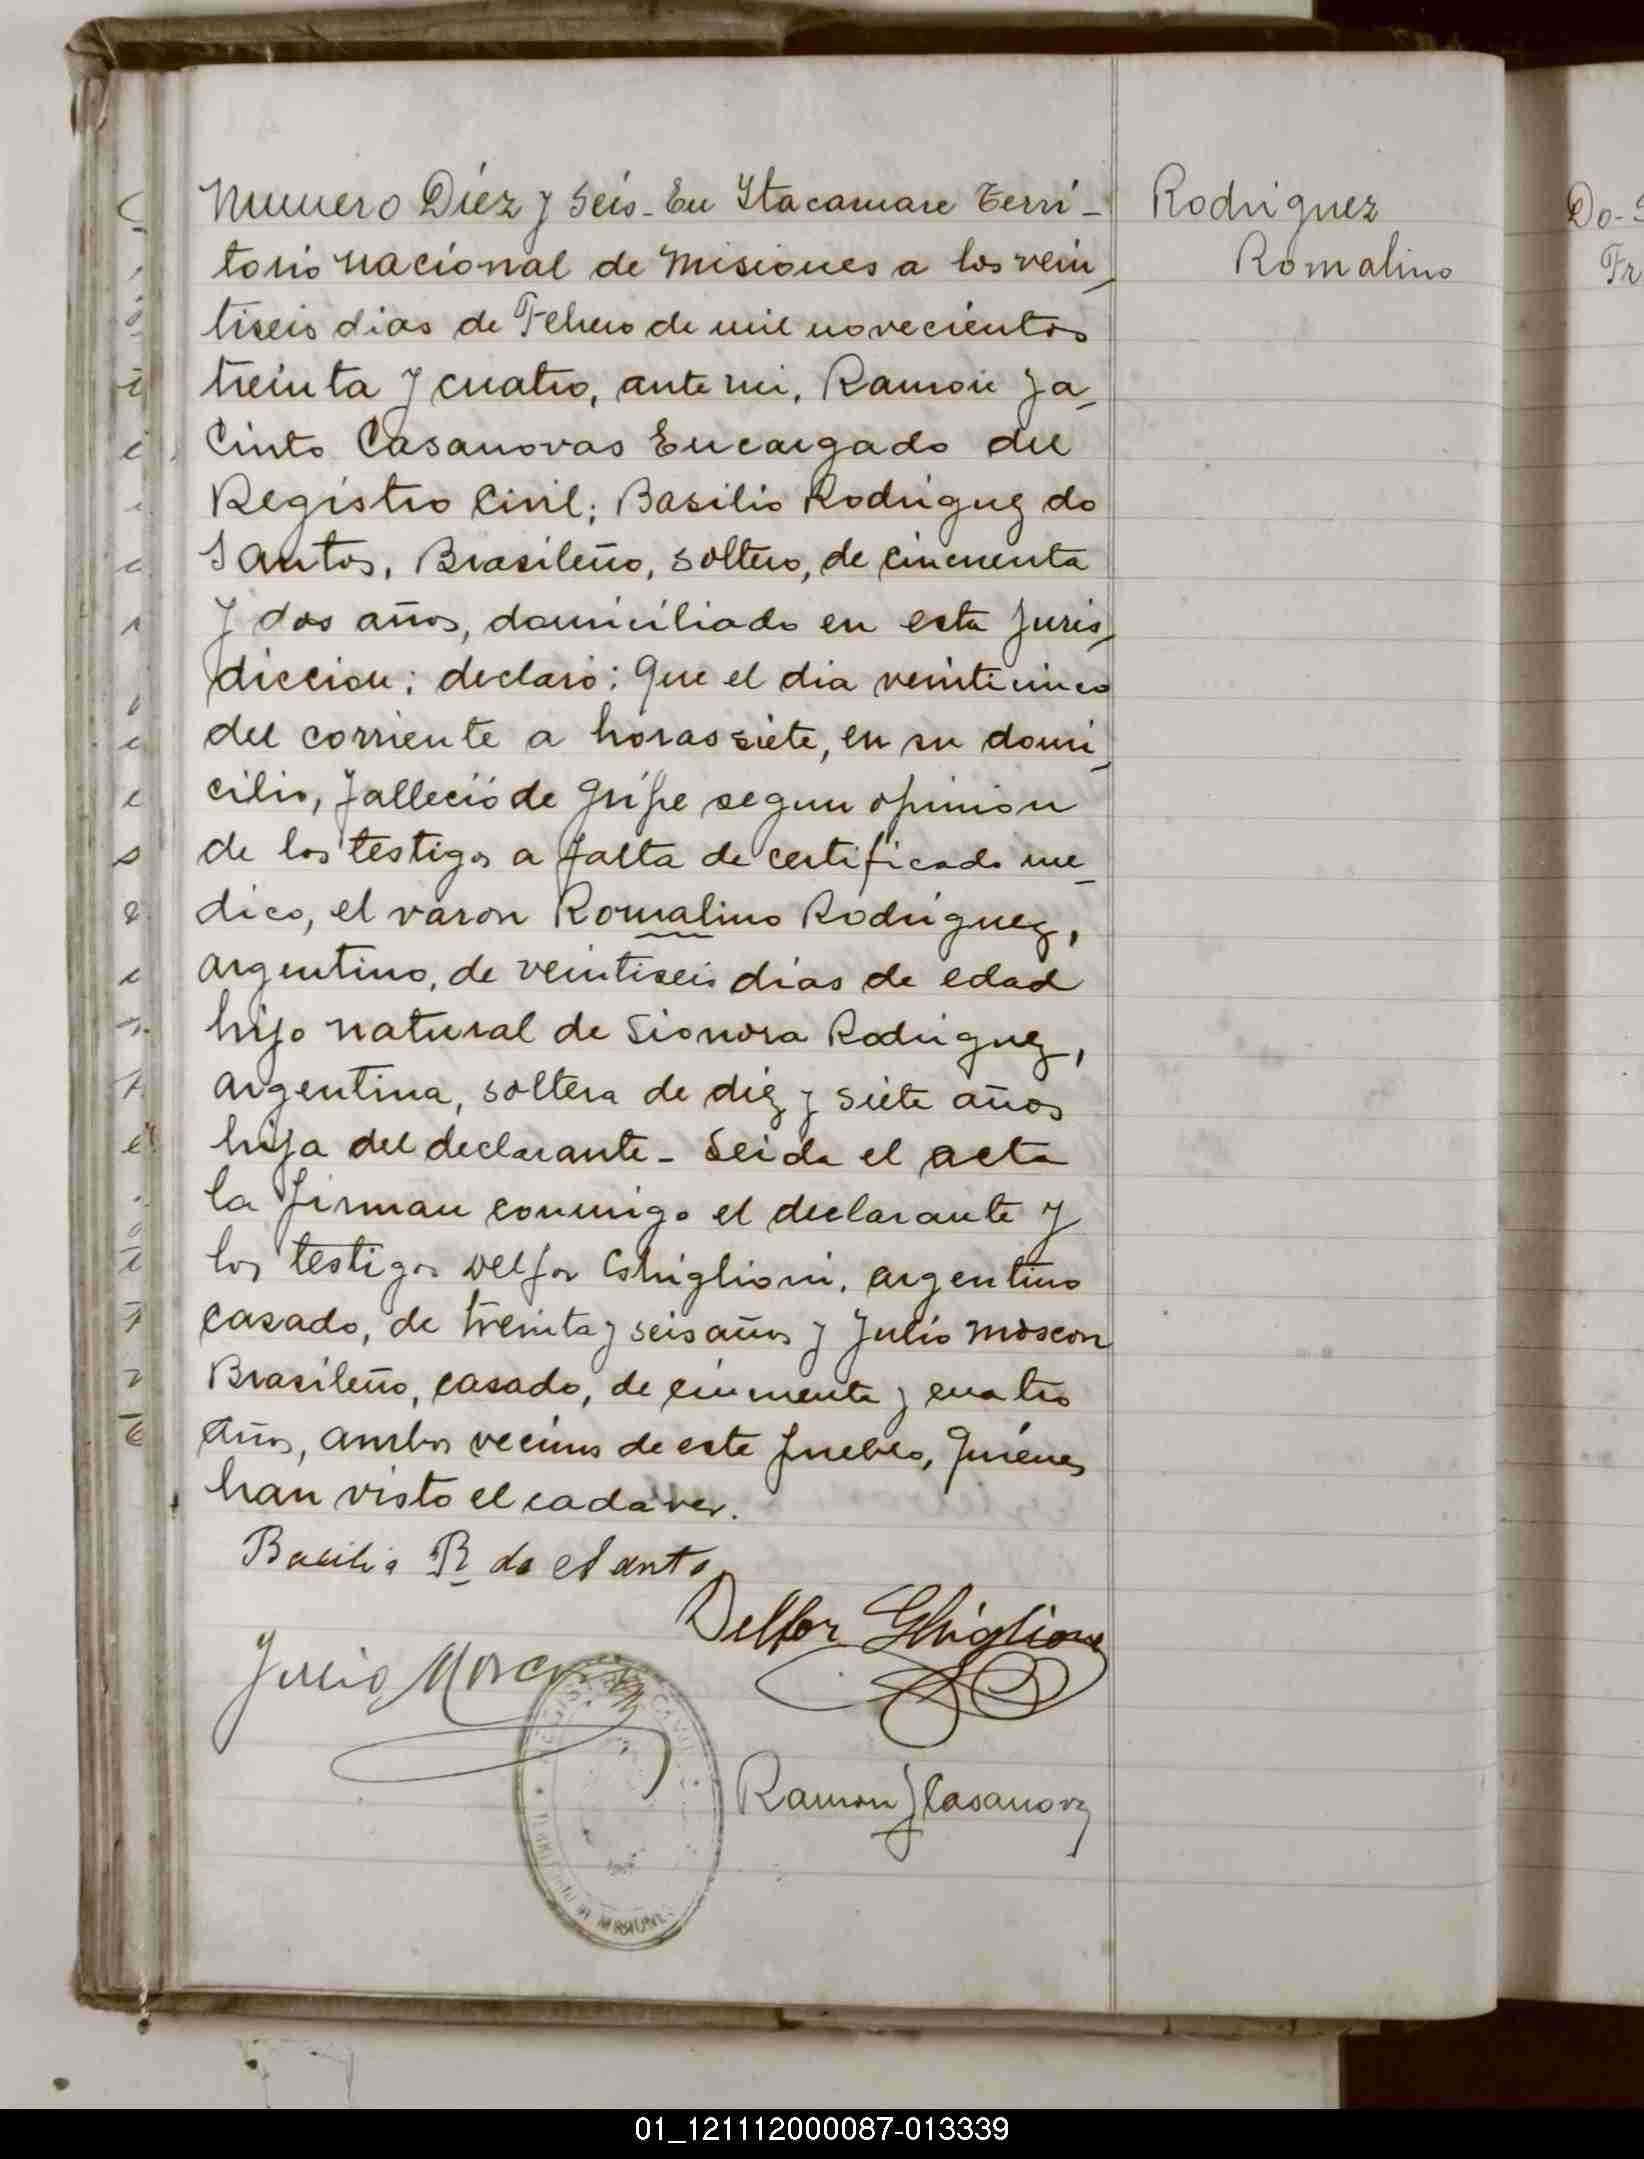 Numero Diez y Seis - En Ytacamare Terri-
torio nacional de Misiones a los vein
tiseis dias de Febrero de mil novecientos
treinta y cuatro, ante mi, Ramon Ja-
cinto Casanovas Encargado del
Registro Civil; Basilio Rodriguez do
Santos, Brasileño, soltero, de cincuenta
y dos años, domiciliado en esta juris
diccion; declaró: Que el dia veinticinco
del corriente a horas siete, en su domi
cilio, falleció de gripe segun opinion
de los testigos a falta de certificado me-
dico, el varon Romalino Rodriguez,
argentino, de veintiseis dias de edad
hijo natural de Sionora Rodriguez,
argentina, soltera de diez y siete años
hija del declarante - Leida el acta
la firman conmigo el declarante y
los testigos Delfor Ghiglioni, argentino
casado, de treinta y seis años y Julio Moscon
Brasileño, casado, de cincuenta y cuatro
años, ambos vecinos de este pueblo, quienes
han visto el cadaver.
Basilio R. do Santo
Delfor Ghiglione
Julio Moscon
Ramon J Casanova
Rodriguez
Romalino
Do-
Fr
01_121112000087-013339